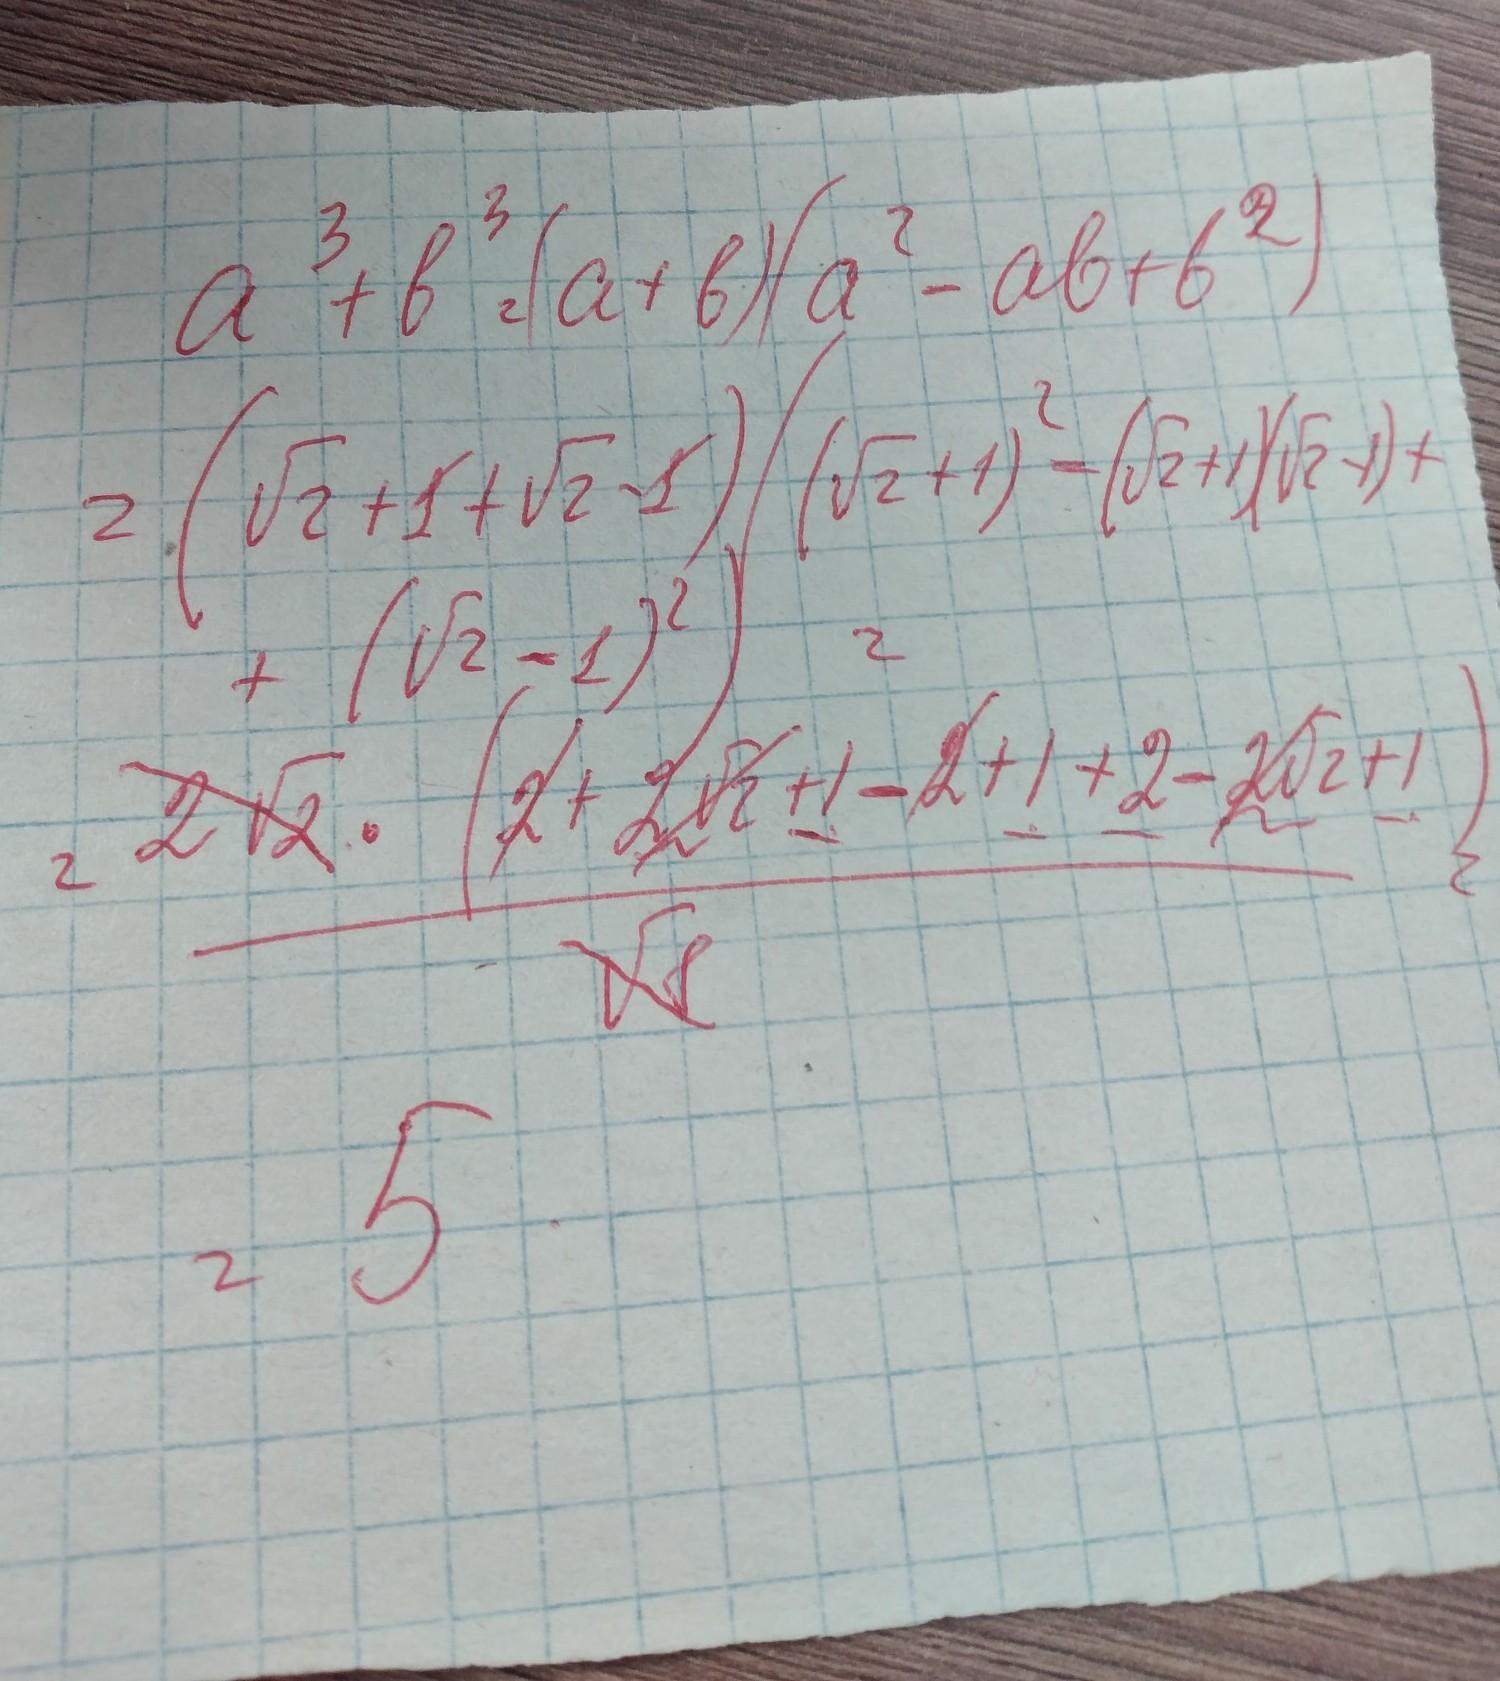 a³+b³=(a+b)(a²-ab+b²)
=(√2+1+√2-1)((√2+1)²-(√2+1)(√2-1)+
+(√2-1)²)=
=2√2·(2+2√2+1-2+1+2-2√2+1)=
√8
=5